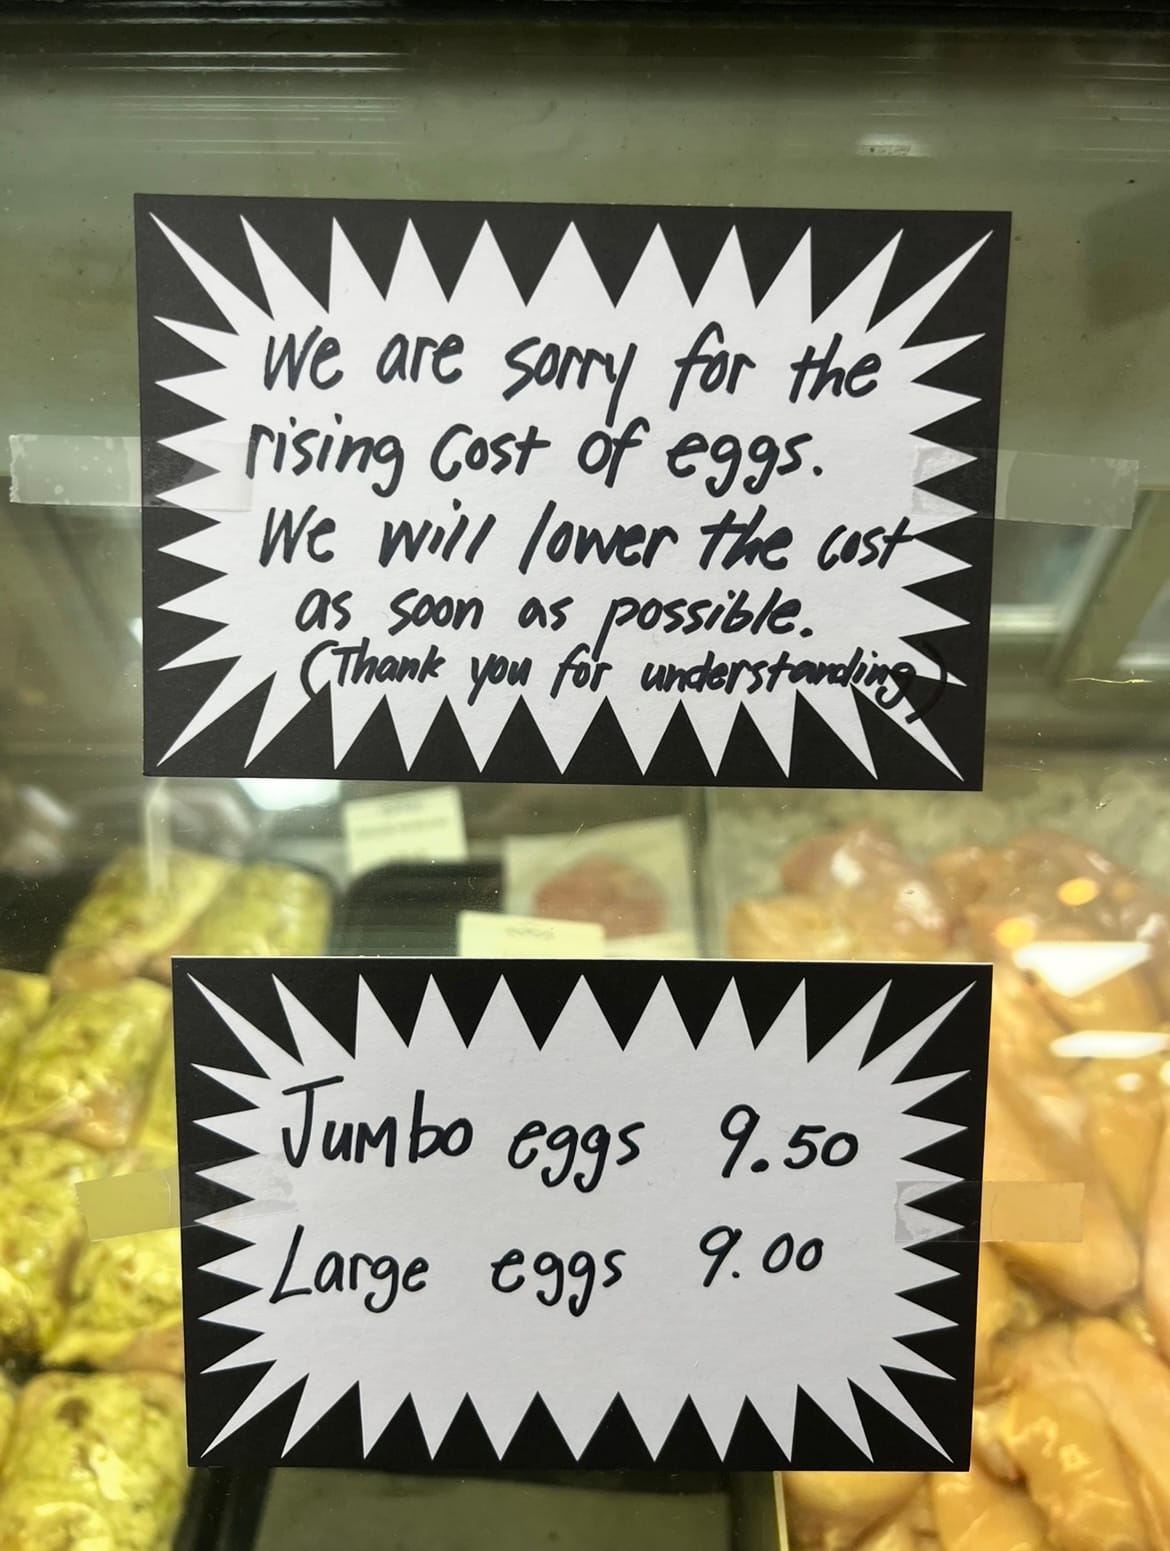 We are sorry for the
rising cost of eggs.
We will lower the cost
as soon as possible.
(Thank you for understanding)
Jumbo eggs 9.50
Large eggs 9.00